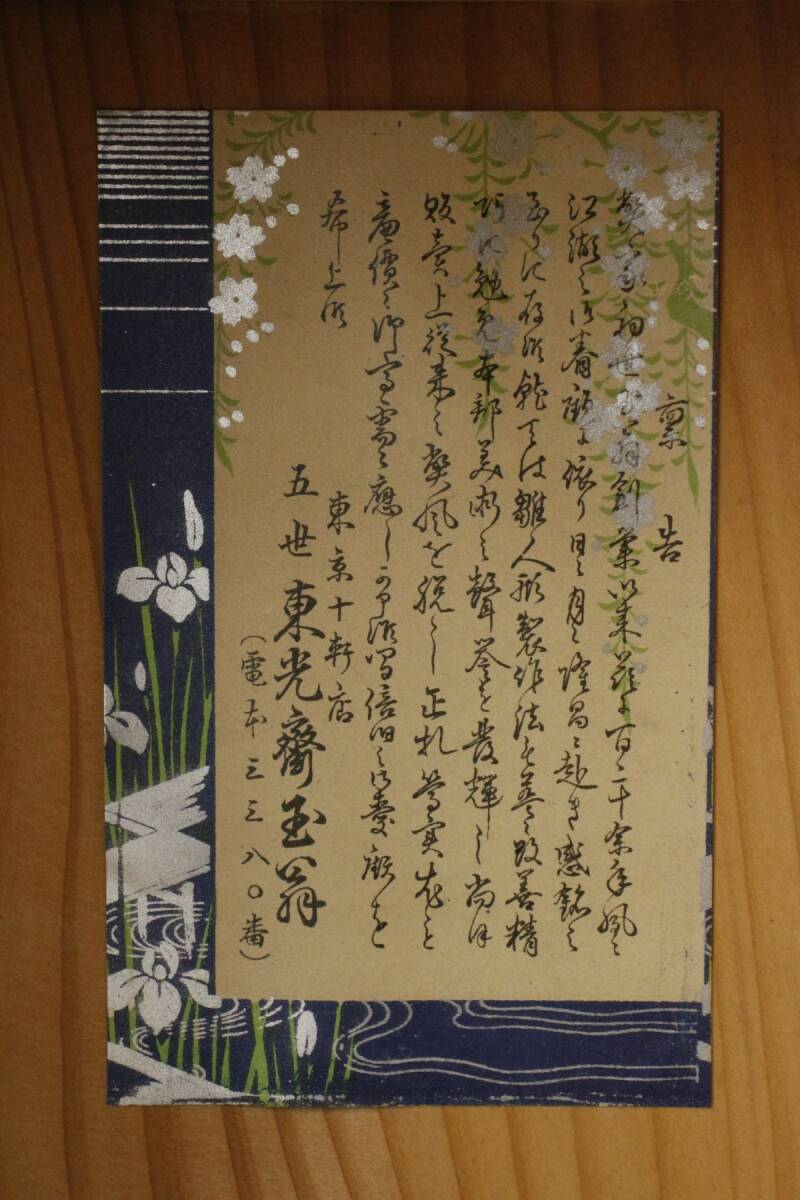 稟告
弊家初世玉翁創業以来茲に百二十余年夙に
江湖之御眷顧に依り日に月に隆昌に赴き感銘之
至りに存候就ては雛人形製作法も益々改善精
巧に勉め本部美術之声誉を発輝し尚ほ
販売上従来之弊風を脱し正札篤実を
廉価に御高需に応じ可申候間倍旧之御愛顧を
希上候
東京十軒店
五世東光齋玉翁
(電本三三八〇番)